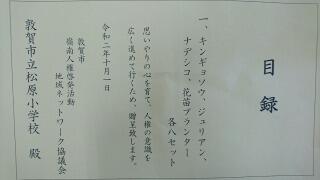 目録
一、キンギョソウ、ジュリアン、
ナデシコ、花苗プランター
各八セット
思いやりの心を育て、人権の意識を
広く進めて行くため、贈呈致します。
令和二年十月一日
敦賀市
嶺南人権啓発活動
地域ネットワーク協議会
敦賀市立松原小学校 殿